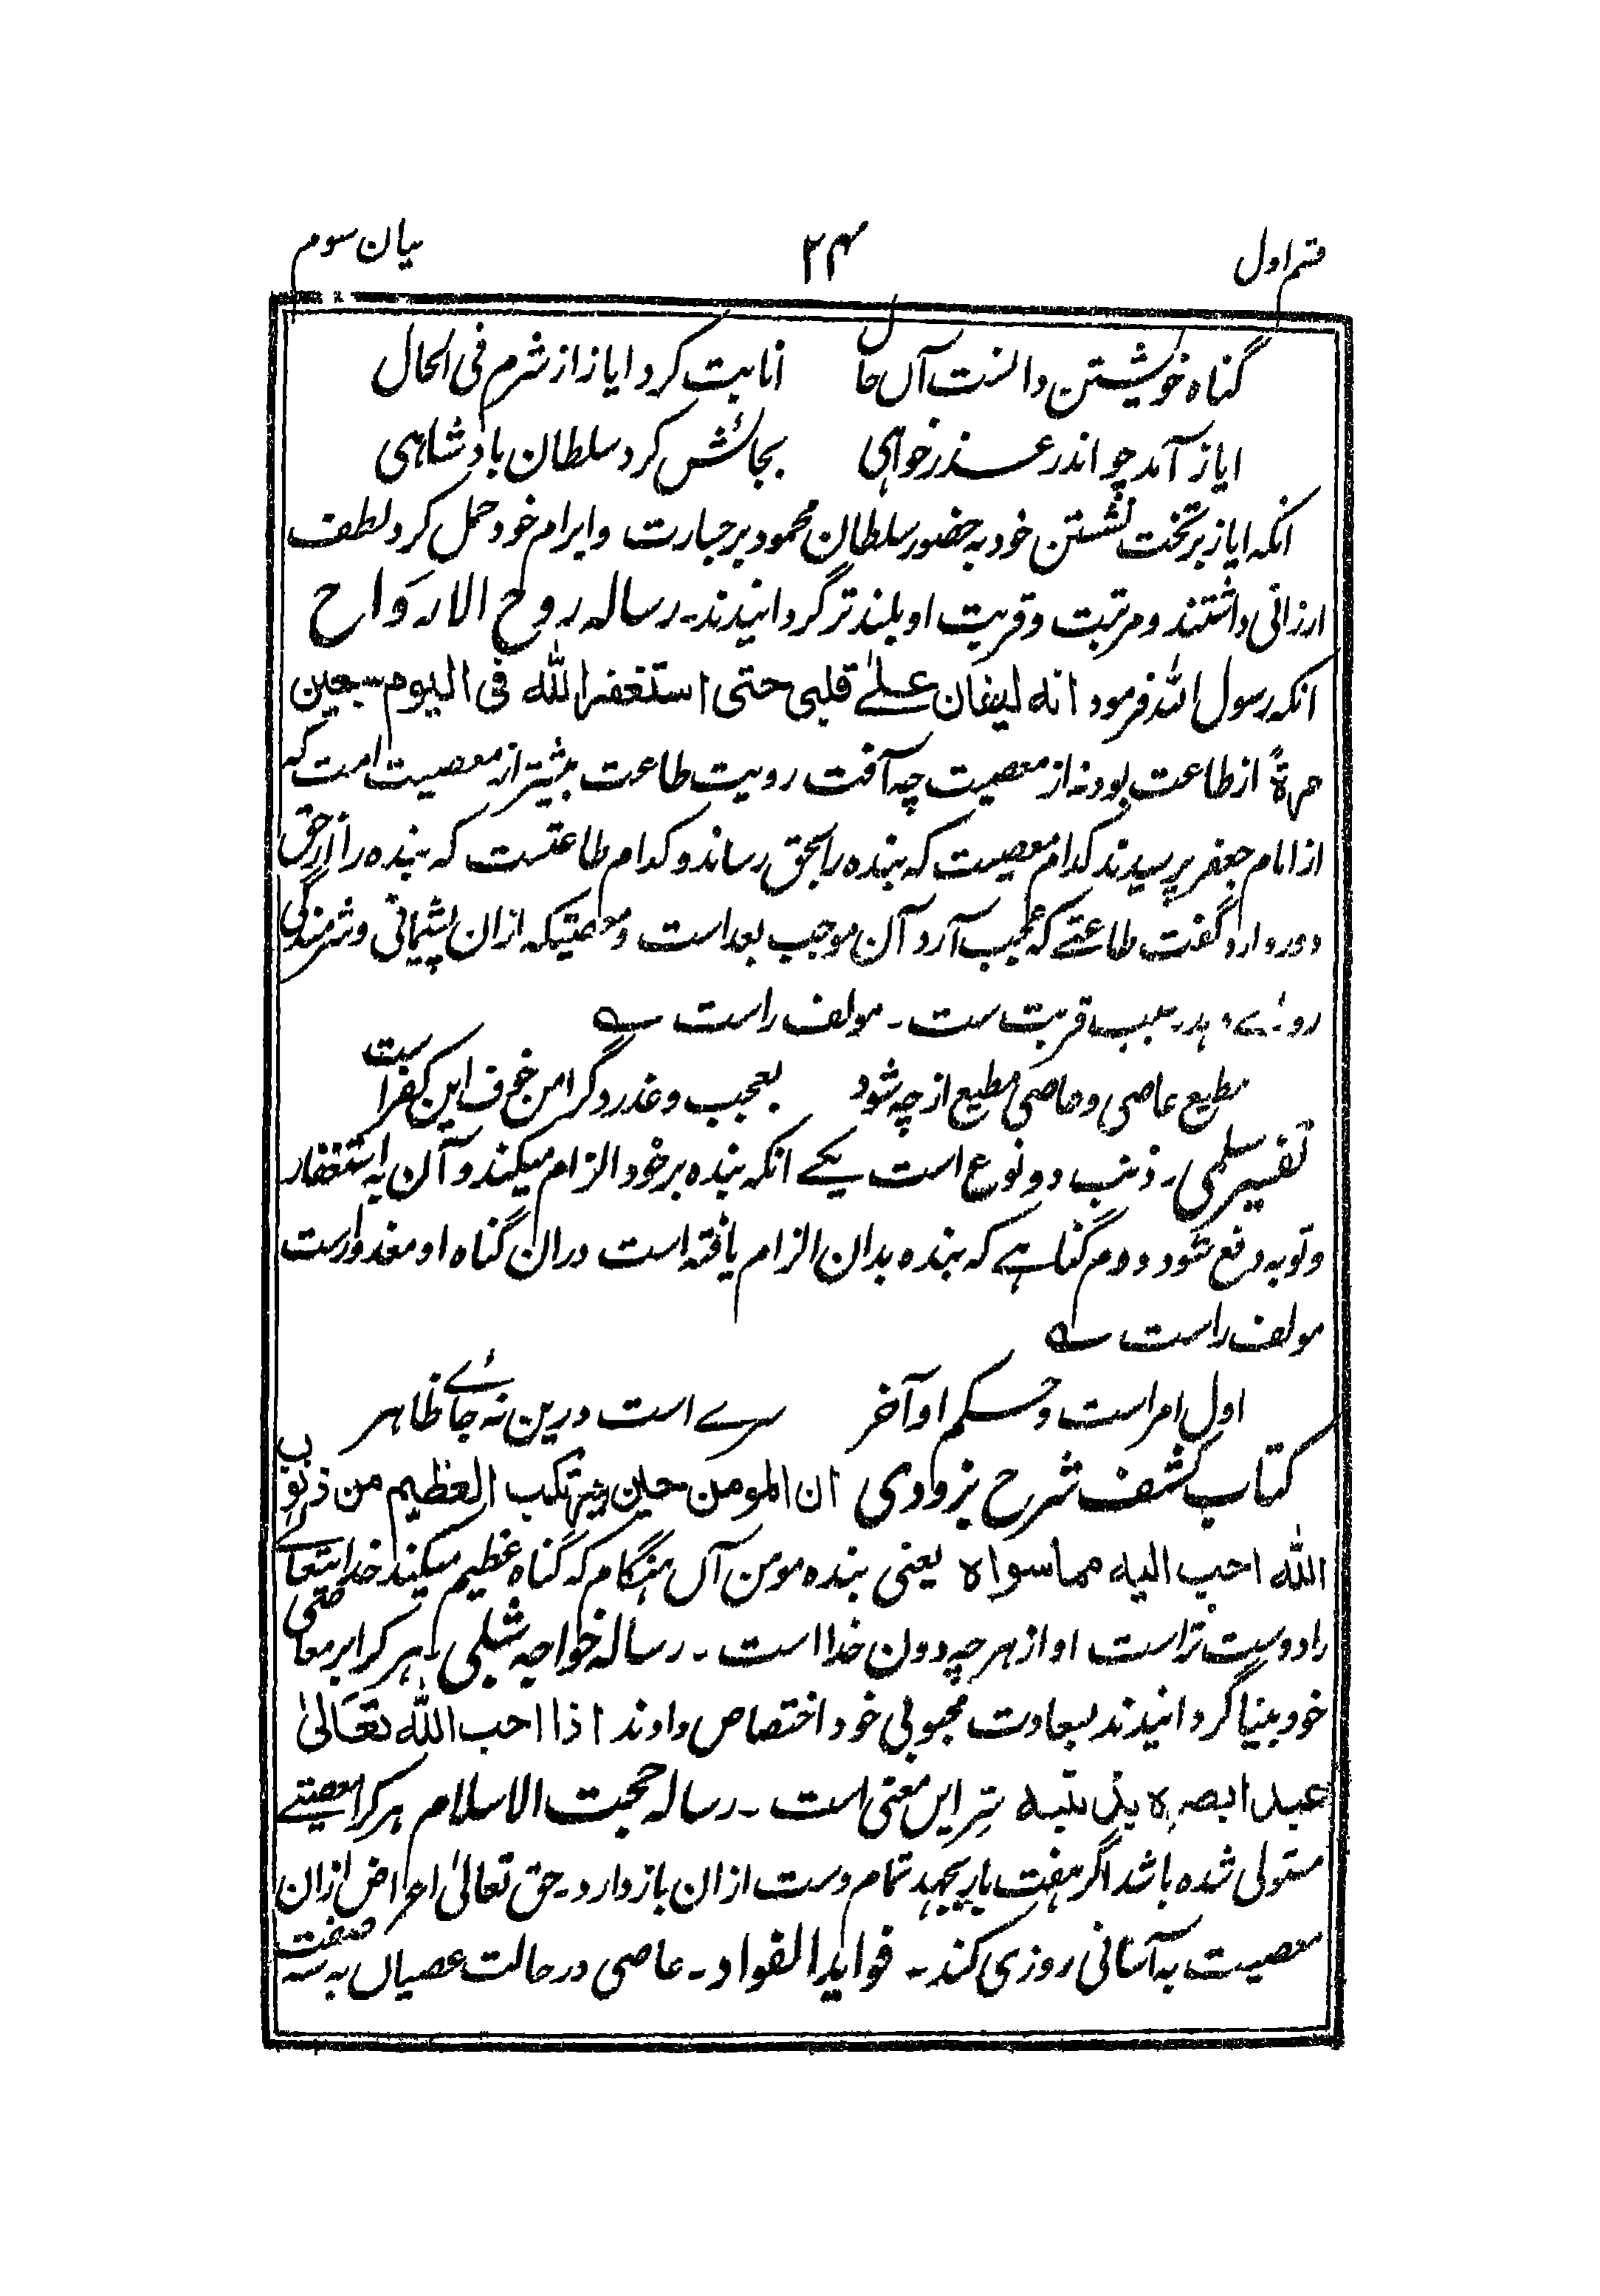 قسم اول ۲۴ بیان سوم
گناه خویشتن دانست آں حال انابت کرد ایاز از شرم فی الحال
ایاز آمد چو اندر عذر خواهی بجائش کرد سلطان بادشاهی
انکه ایاز بر تخت نشستن خود به حضور سلطان محمود بر جسارت و ابرام خود حمل کرد لطف
ارزانی داشتند و مرتبت و قربت او بلند تر گردانیدند۔ رساله روح الارواح
انکه رسول الله فرمود انه لیغان علےٰ قلبی حتی استغفر الله فی الیوم سبعین
مرةً از طاعت بود نه از معصیت چه آفت رویت طاعت بیشتر از معصیت است که
از امام جعفر پرسیدند کدام معصیت که بنده را بحق رساند و کدام طاعتست که بنده را از حق
دور دارد گفت طاعتے که عجب آرد آن موجب بعد است و معصیتیکه ازان پشیمانی و شرمندگی
روئے دهد سبب قربت ست۔ مولف راست ؎
مطیع عاصی و عاصی مطیع از چه شود بعجب و عذر دگر امن خوف این کفر است
تفسیر سلمی۔ ذنب دو نوع است یکے انکه بنده بر خود الزام میکند و آن به استغفار
و توبه دفع شود دوم گناهے که بنده بدان الزام یافته است دران گناه او معذور است
مولف راست ؎
اول امر است و حسکم او آخر سرے است درین نه جائے ظاهر
کتاب کشف شرح بزودی ان المومن حین یرتکب العظیم من ذنوب
الله احب الیه مما سواه یعنی بنده مومن آں هنگام که گناه عظیم میکند خدایتعالے
را دوست تر است او از هر چه دون خدا است۔ رساله خواجه شبلی۔ هر کرا بر معاصی
خود بینا گردانیدند بسعادت محبوبی خود اختصاص دادند اذا احب الله تعالیٰ
عبدا ابصره بذنبه سِر ایں معنی است۔ رساله حجت الاسلام هر کرا معصیتے
مستولی شده باشد اگر هفت بار بجهد تمام دست ازان باز دارد۔ حق تعالیٰ اعراض ازان
معصیت به آسانی روزی کند۔ فواید الفواد۔ عاصی در حالت عصیاں به سه صفت